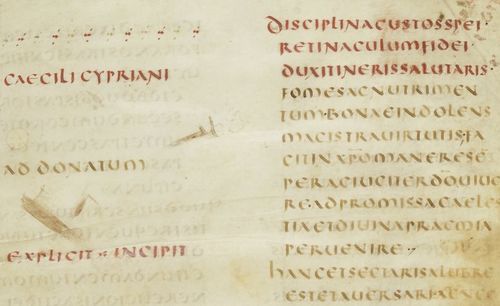 CAECILI CYPRIANI
AD DONATUM
EXPLICIT · INCIPIT
DISCIPLINACUSTOSSPEI·
RETINACULUMFIDEI·
DUXITINERISSALUTARIS·
FOMESACNUTRIMEN
TUMBONAEINDOLENS
MAGISTRAUIRTUTIS;FA
CITINXP̅OMANERESE̅
PERACIUGITERD̅OUIUE
READPROMISSACAELES
TIAETDIUINAPRAEMIA
PERUENIRE··
HANCETSECTARISALUBRE